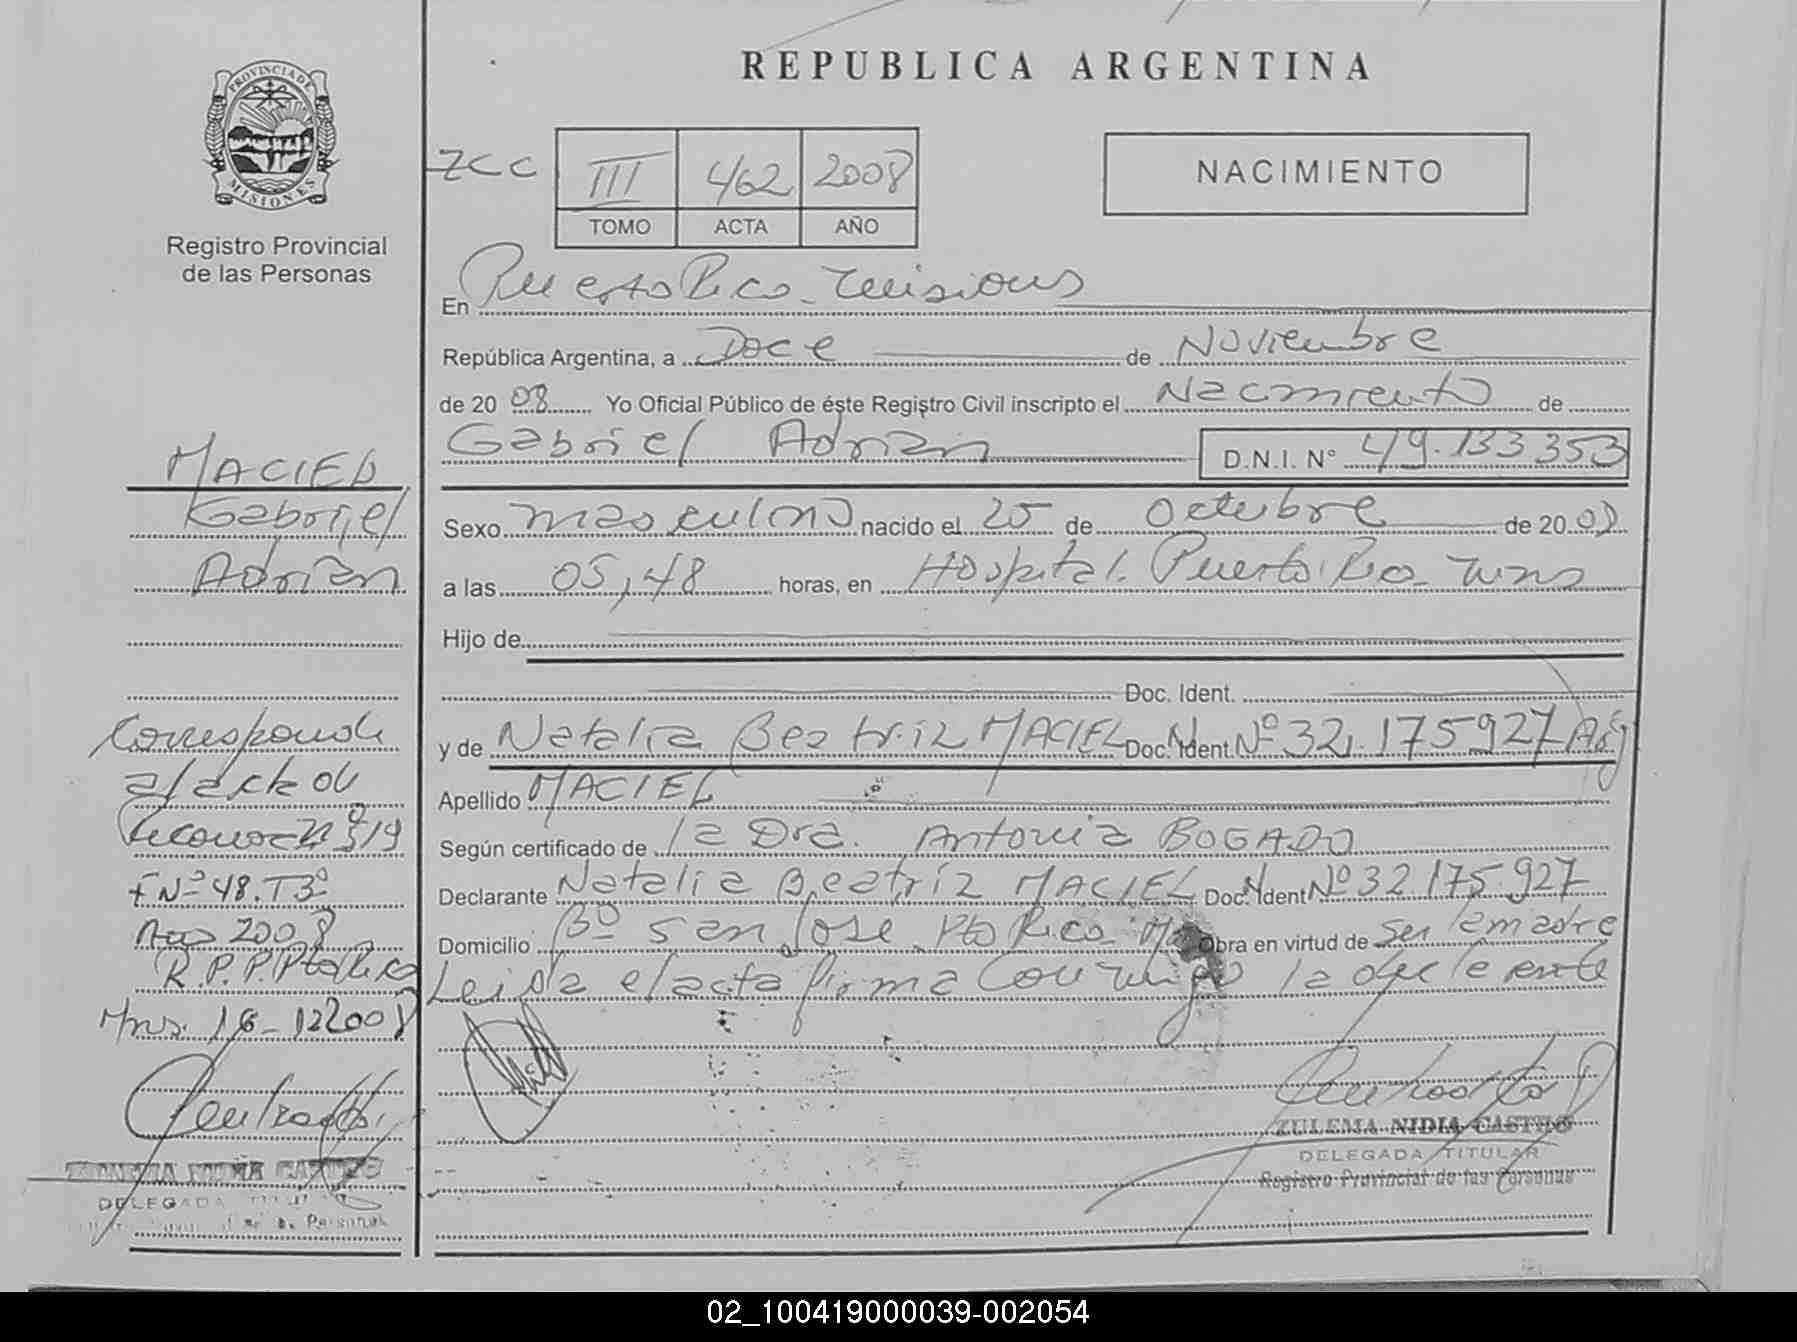 REPUBLICA ARGENTINA
PROVINCIA DE
MISIONES
Registro Provincial
de las Personas
NACIMIENTO
ZCC
III 462 2008
TOMO ACTA AÑO
En Puerto Rico - Misiones
República Argentina, a Doce de Noviembre
de 20 08 Yo Oficial Público de éste Registro Civil inscripto el Nacimiento de
Gabriel Adrian D.N.I. N° 49.133353
Sexo masculino nacido el 25 de Octubre de 20 08
a las 05,48 horas, en Hospital. Puerto Rico - Mns
Hijo de
Doc. Ident.
y de Natalia Beatriz MACIEL Doc. Ident. Nº 32.175927 Arg
Apellido MACIEL
Según certificado de la Dra. Antonia BOGADO
Declarante Natalia Beatriz MACIEL Doc. Ident Nº 32175.927
Domicilio Bº San Jose Pto Rico Obra en virtud de ser la madre
Leida el acta firma conmigo la declarante
ZULEMA NIDIA CASTILO
DELEGADA TITULAR
Registro Provincial de las Personas
MACIEL
Gabriel
Adrian
Corresponde
al acta de
Reconoc Nº 319
F Nº 48. T3º
Año 2008
R.P.P. Pto Rico
Mns. 16-122008
DELEGADA TITULAR
02_100419000039-002054